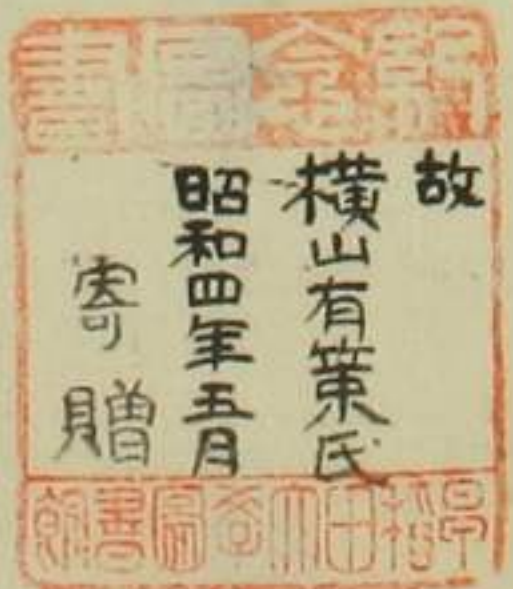 記念圖書
故
横山有策氏
昭和四年五月
寄贈
早稻田大學圖書館